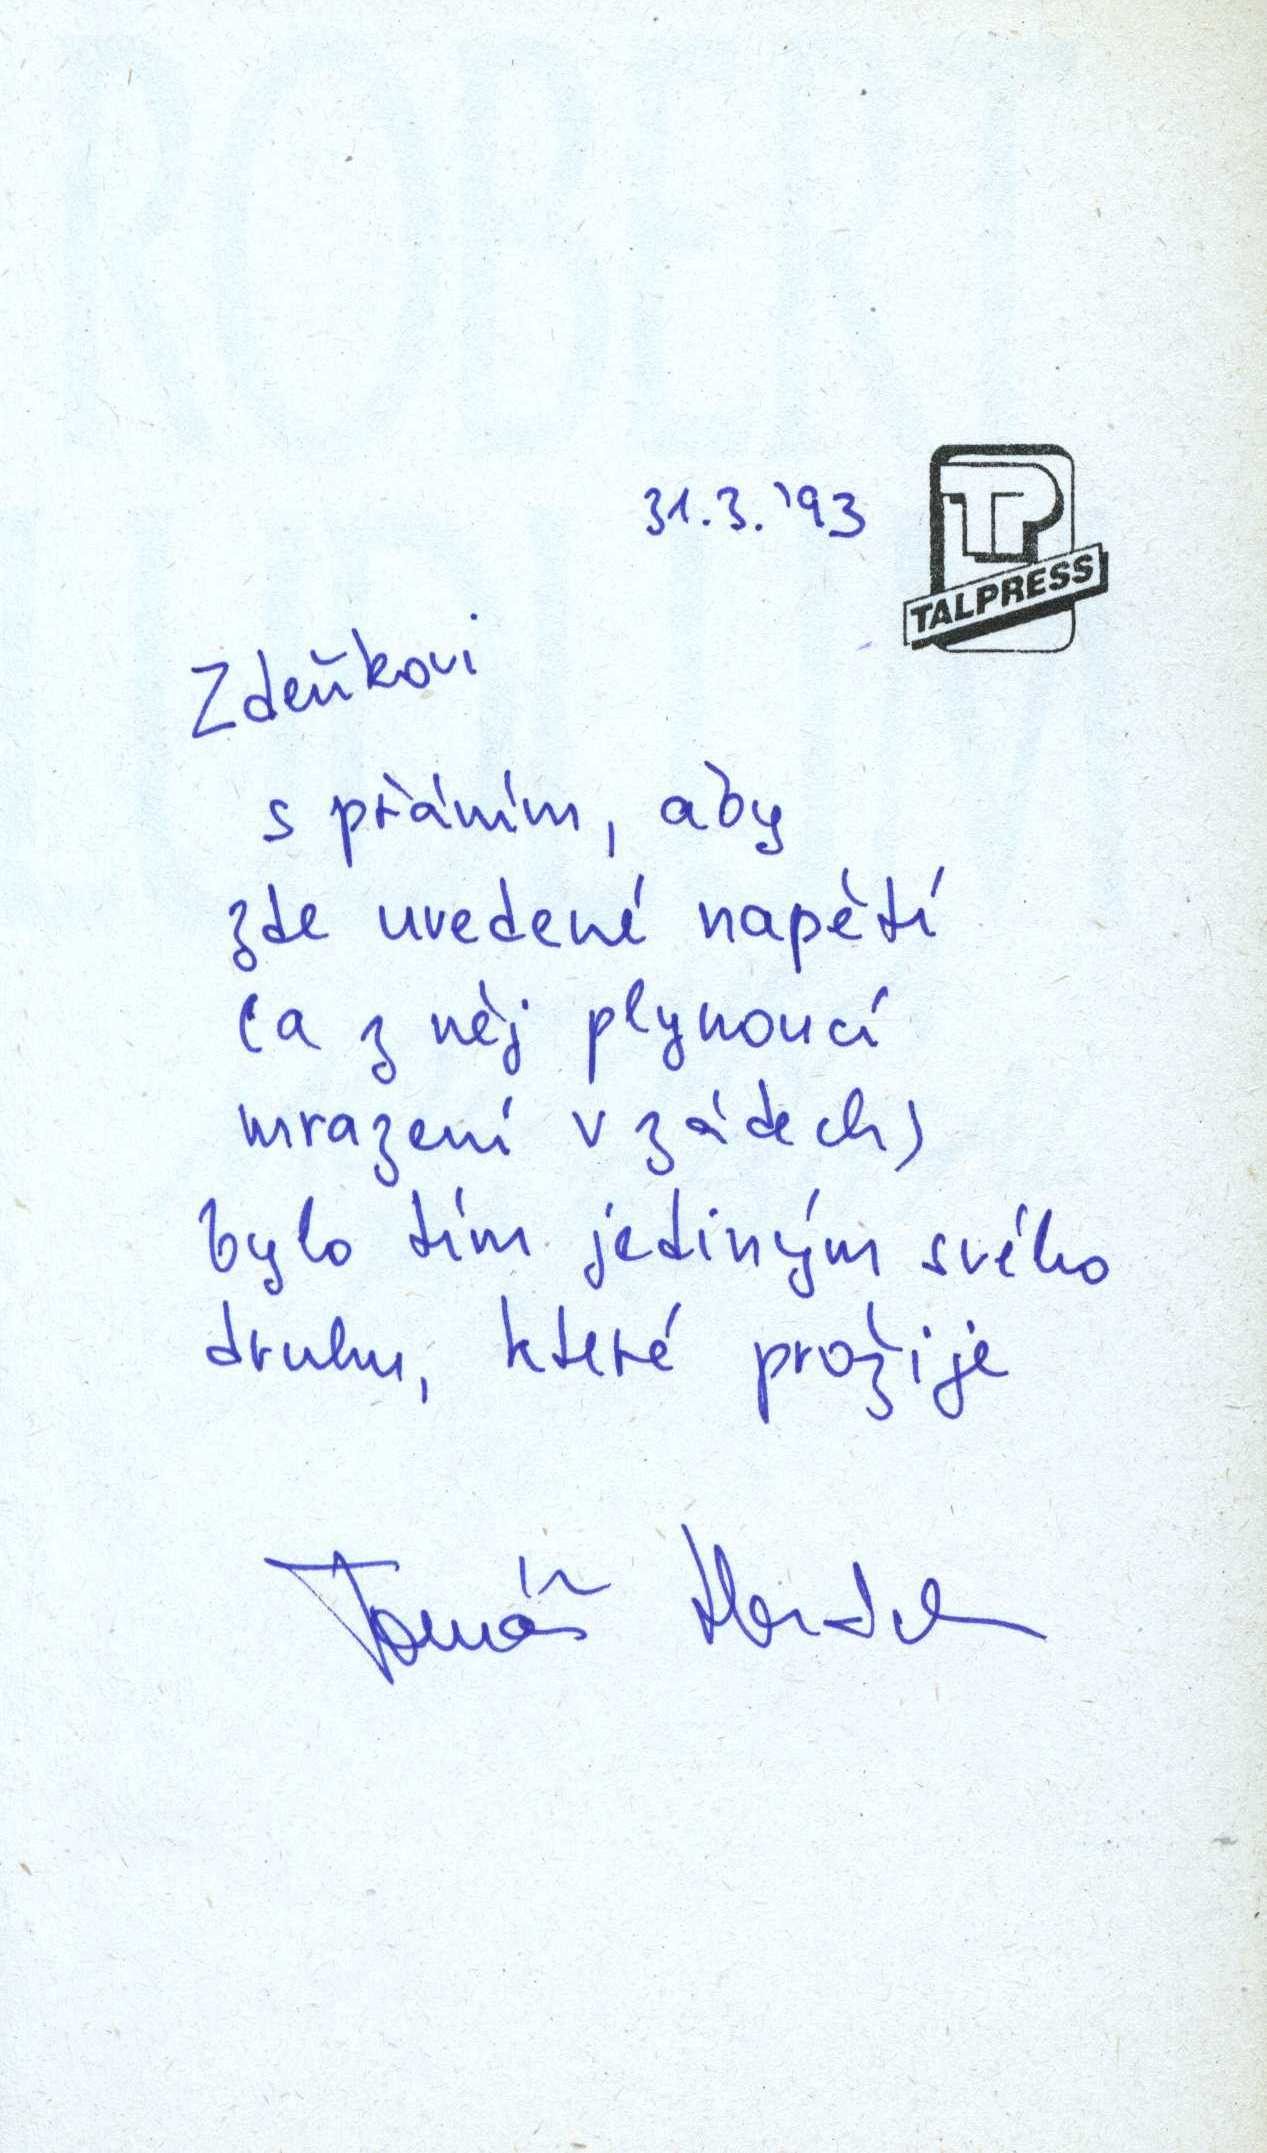 31.3.'93
TP
TALPRESS
Zdeňkovi
s přáním, aby
zde uvedené napětí
(a z něj plynoucí
mrazení v zádech)
bylo tím jediným svého
druhu, které prožije
Tomáš